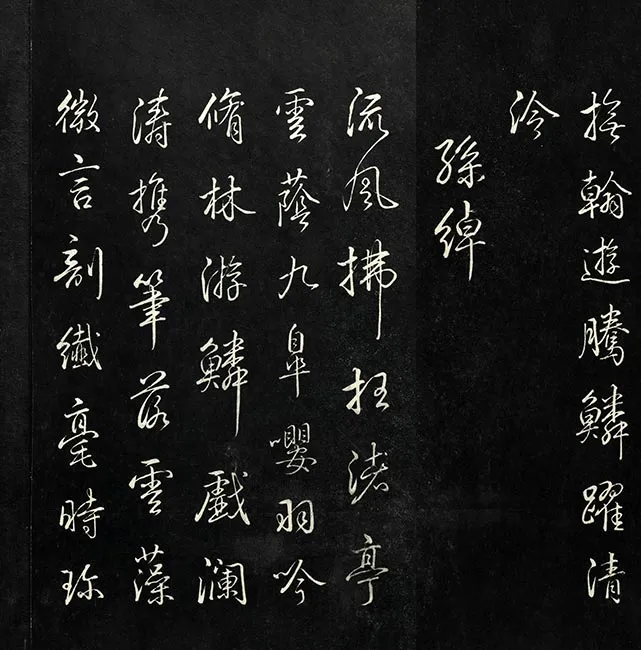 撫翰遊騰鱗躍清
泠
孫綽
流風拂枉渚亭
雲蔭九皐嚶羽吟
脩林游鱗戲瀾
濤携筆落雲藻
微言剖纖毫時珍